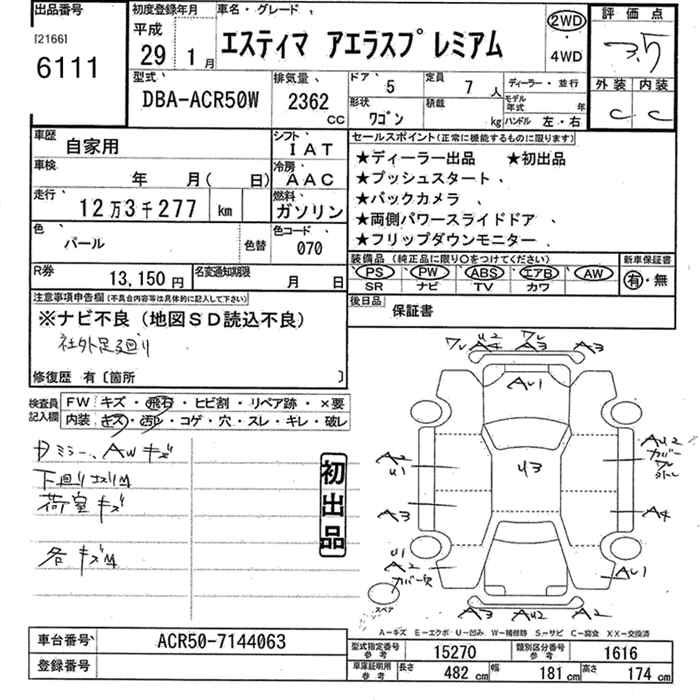 出品番号 初度登録年月 車名・グレード 評価点
[2166] 平成 2WD
6111 29 1月 エスティマ アエラスプレミアム ・ 3.5
4WD
型式 排気量 ドア 5 定員 7人 ディーラー・並行 外装 内装
DBA-ACR50W 2362cc 形状 ワゴン 積載 kg モデル年式 年 C C
ハンドル 左・右
車歴 自家用 シフト IAT セールスポイント(正常に機能するものに限ります)
車検 年 月( 日) 冷房 AAC ★ディーラー出品 ★初出品
走行 12万3千277 km 燃料 ガソリン ★プッシュスタート
★バックカメラ
色 パール 色替 色コード 070 ★両側パワースライドドア
★フリップダウンモニター
R券 13,150円 名変通知期限 月 日 装備品(純正品に限り○をつけてください) 新車保証書
PS PW ABS エアB AW 有・無
SR ナビ TV カワ
注意事項申告欄(不具合内容等は具体的に記入して下さい) 後日品 保証書
※ナビ不良(地図SD読込不良)
社外足廻り
修復歴 有〔箇所 〕
検査員記入欄 FW キズ・飛石・ヒビ割・リペア跡・×要
内装 キズ・汚れ・コゲ・穴・スレ・キレ・破レ
ミラー、AWキズ
下廻り
荷室キズ
各キズ
初出品
A3 A3
AU1
A2 U1 U3 AU2 カバー
A3 A4
U1 A2 カバー欠 AU1
スペア A3 AU2 A2
A-キズ E-エクボ U-凹み W-補修跡 S-サビ C-腐食 XX-交換済
車台番号 ACR50-7144063 型式指定番号参考 15270 類別区分番号参考 1616
登録番号 車庫証明用参考 長さ 482cm 幅 181cm 高さ 174cm